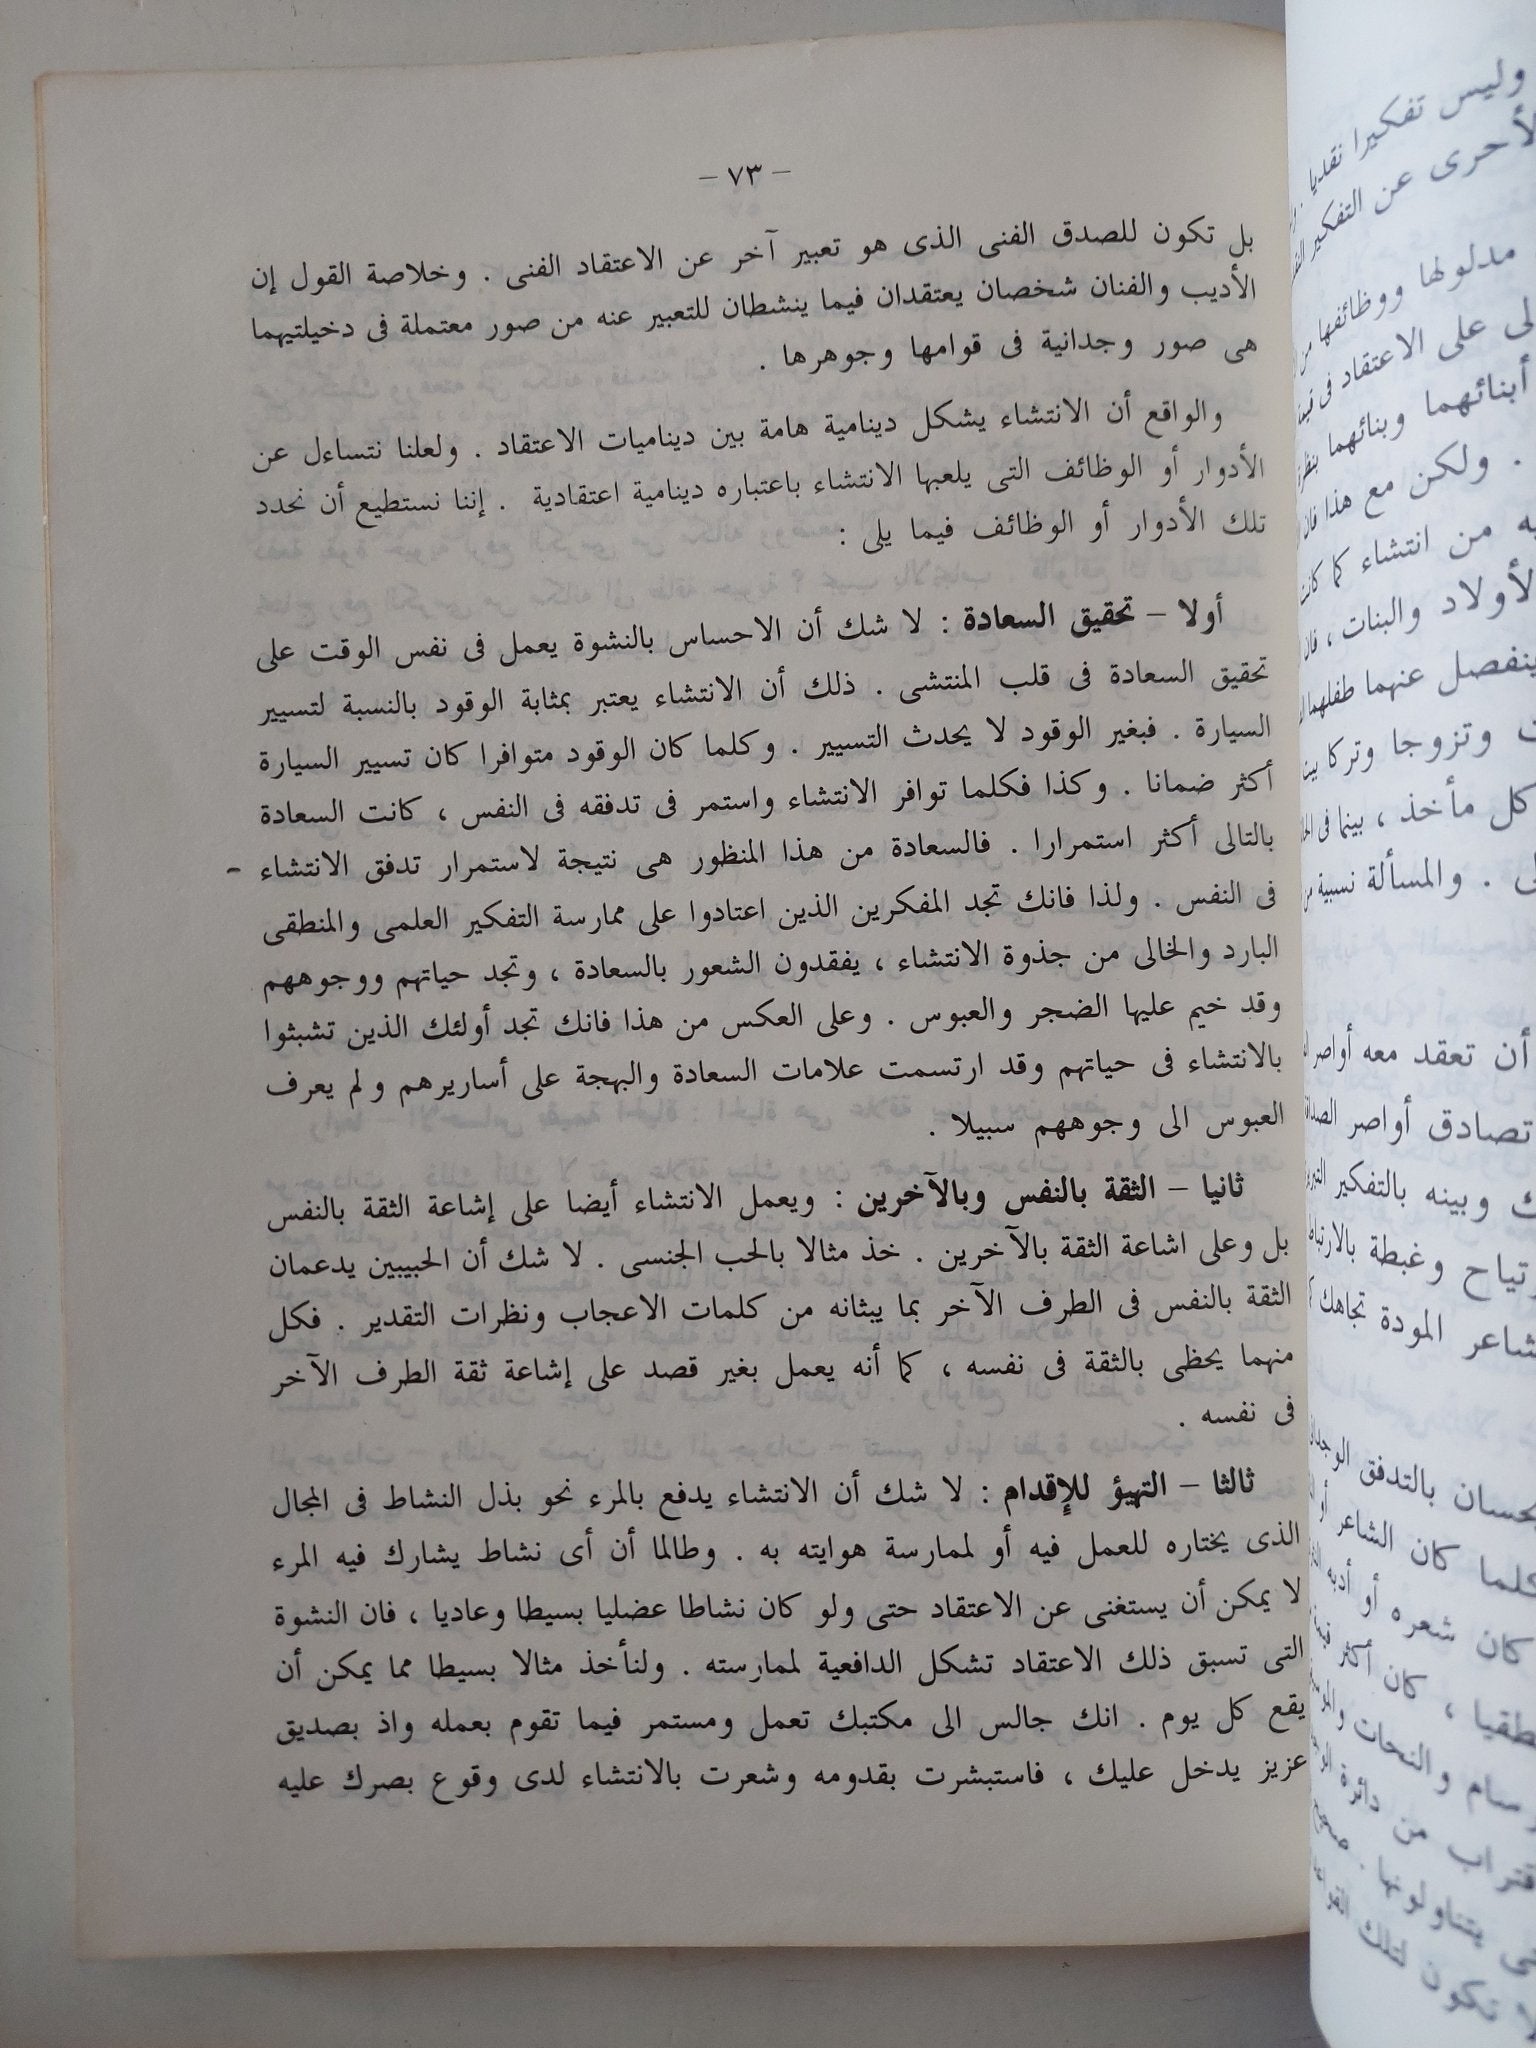 – ٧٣ –
بل تكون للصدق الفنى الذى هو تعبير آخر عن الاعتقاد الفنى . وخلاصة القول إن
الأديب والفنان شخصان يعتقدان فيما ينشطان للتعبير عنه من صور معتملة فى دخيلتيهما
هى صور وجدانية فى قوامها وجوهرها .
والواقع أن الانتشاء يشكل دينامية هامة بين ديناميات الاعتقاد . ولعلنا نتساءل عن
الأدوار أو الوظائف التى يلعبها الانتشاء باعتباره دينامية اعتقادية . إننا نستطيع أن نحدد
تلك الأدوار أو الوظائف فيما يلى :
أولا – تحقيق السعادة : لا شك أن الاحساس بالنشوة يعمل فى نفس الوقت على
تحقيق السعادة فى قلب المنتشى . ذلك أن الانتشاء يعتبر بمثابة الوقود بالنسبة لتسيير
السيارة . فبغير الوقود لا يحدث التسيير . وكلما كان الوقود متوافرا كان تسيير السيارة
أكثر ضمانا . وكذا فكلما توافر الانتشاء واستمر فى تدفقه فى النفس ، كانت السعادة
بالتالى أكثر استمرارا . فالسعادة من هذا المنظور هى نتيجة لاستمرار تدفق الانتشاء -
فى النفس . ولذا فانك تجد المفكرين الذين اعتادوا على ممارسة التفكير العلمى والمنطقى
البارد والخالى من جذوة الانتشاء ، يفقدون الشعور بالسعادة ، وتجد حياتهم ووجوههم
وقد خيم عليها الضجر والعبوس . وعلى العكس من هذا فانك تجد أولئك الذين تشبثوا
بالانتشاء فى حياتهم وقد ارتسمت علامات السعادة والبهجة على أساريرهم ولم يعرف
العبوس الى وجوههم سبيلا .
ثانيا – الثقة بالنفس وبالآخرين : ويعمل الانتشاء أيضا على إشاعة الثقة بالنفس
بل وعلى اشاعة الثقة بالآخرين . خذ مثالا بالحب الجنسى . لا شك أن الحبيبين يدعمان
الثقة بالنفس فى الطرف الآخر بما يبثانه من كلمات الاعجاب ونظرات التقدير . فكل
منهما يحظى بالثقة فى نفسه ، كما أنه يعمل بغير قصد على إشاعة ثقة الطرف الآخر
فى نفسه .
ثالثا – التهيؤ للإقدام : لا شك أن الانتشاء يدفع بالمرء نحو بذل النشاط فى المجال
الذى يختاره للعمل فيه أو لممارسة هوايته به . وطالما أن أى نشاط يشارك فيه المرء
لا يمكن أن يستغنى عن الاعتقاد حتى ولو كان نشاطا عضليا بسيطا وعاديا ، فان النشوة
التى تسبق ذلك الاعتقاد تشكل الدافعية لممارسته . ولنأخذ مثالا بسيطا مما يمكن أن
يقع كل يوم . انك جالس الى مكتبك تعمل ومستمر فيما تقوم بعمله واذ بصديق
عزيز يدخل عليك ، فاستبشرت بقدومه وشعرت بالانتشاء لدى وقوع بصرك عليه
وليس تفكيرا نقديا
عن التفكير
مدلولها ووظائفها من
على الاعتقاد فى
أبنائهما وبنائهما
. ولكن مع هذا فان
من انتشاء كما كانت
والبنات ، فان
ينفصل عنهما طفلهما
وتزوجا وتركا
كل مأخذ ، بينما فى
. والمسألة نسبية من
أن تعقد معه أواصر
تصادق أواصر
وبينه بالتفكير
وغبطة
المودة تجاهك
بالتدفق
كان الشاعر أو
كان شعره أو أدبه
، كان أكثر
والنحات
من دائرة
يتناولونها .
تكون لتلك